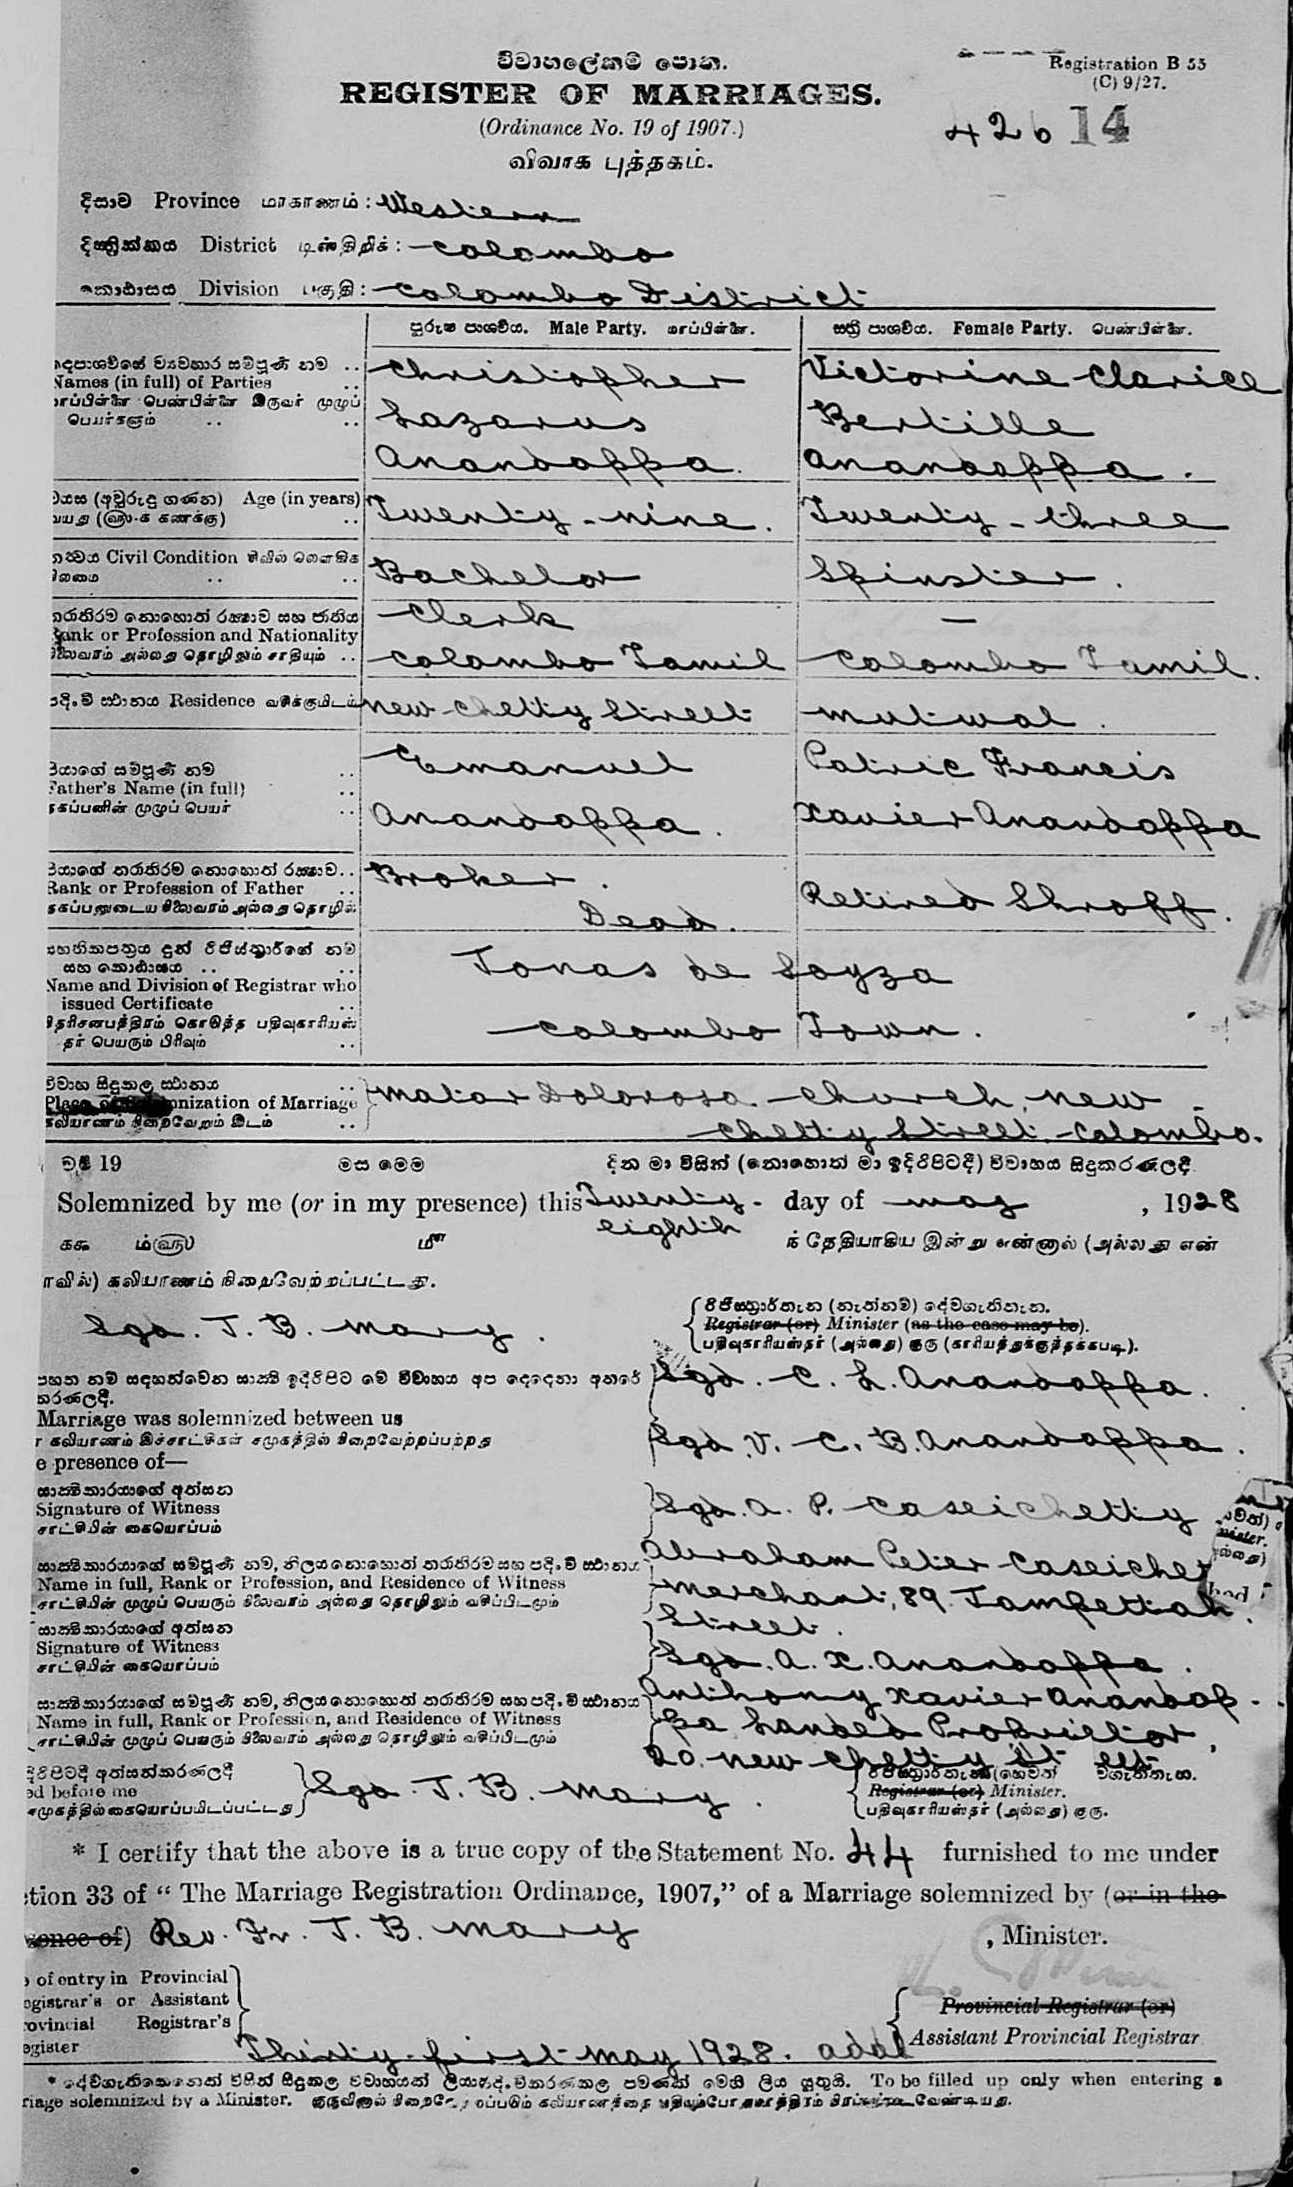 විවාහලේකම් පොත.
Registration B 55
(C) 9/27.
REGISTER OF MARRIAGES.
(Ordinance No. 19 of 1907.)
426 14
விவாக புத்தகம்.
දිසාව Province மாகாணம்: Western
දිස්ත්‍රික්කය District டிஸ்திறிக்: Colombo
කොඨාසය Division பகுதி: Colombo District
පුරුෂ පාශවීය. Male Party. மாப்பிள்ளை.
ස්ත්‍රී පාශවීය. Female Party. பெண்பிள்ளை.
Names (in full) of Parties
மாப்பிள்ளை பெண்பிள்ளை இருவர் முழுப்
பெயர்களும்
Christopher
Lazarus
Anandappa.
Victorine Clarice
Bertille
Anandappa.
වයස (අවුරුදු ගණන) Age (in years)
Twenty-nine.
Twenty-three
Civil Condition
Bachelor
Spinster.
Rank or Profession and Nationality
நிலைவரம் அல்லது தொழிலும் சாதியும்
Clerk
Colombo Tamil
—
Colombo Tamil.
පදිංචි ස්ථානය Residence வசிக்குமிடம்
New Chetty Street
Mutwal.
පියාගේ සම්පූණී නම
Father's Name (in full)
தகப்பனின் முழுப் பெயர்
Emanuel
Anandappa.
Patric Francis
Xavier Anandappa
පියාගේ තරාතිරම නොහොත් රක්‍ෂාව
Rank or Profession of Father
தகப்பனுடைய நிலைவரம் அல்லது தொழில்
Broker.
Dead.
Retired Shroff.
සහතිකපත්‍රය දුන් රෙජිස්ත්‍රාර්ගේ නම
සහ කොඨාසය
Name and Division of Registrar who
issued Certificate
தர் பெயரும் பிரிவும்
Jonas de Soyza
Colombo Town.
විවාහ සිදුකල ස්ථානය
Place of Solemnization of Marriage
கலியாணம் நிறைவேறும் இடம்
Matar Dolorosa Church, New
Chetty Street Colombo.
වර්‍ෂ 19 මස මෙම දින මා විසින් (නොහොත් මා ඉදිරිපිටදී) විවාහය සිදුකරණලදී
Solemnized by me (or in my presence) this Twenty-eighth day of May, 1928
தேதியாகிய இன்று என்னால் (அல்லது என்
கலியாணம் நிறைவேற்றப்பட்டது.
Sgd. J. B. Mary.
Registrar (or) Minister (as the case may be).
பதிவுகாரியஸ்தர் (அல்லது) குரு (காரியத்துக்குத்தக்கபடி).
Sgd. C. L. Anandappa.
Marriage was solemnized between us
கலியாணம் இச்சாட்சிகள் சமுகத்தில் நிறைவேற்றப்பற்றது
e presence of—
Sgd. V. C. B. Anandappa.
සාක්‍ෂිකාරයාගේ අත්සන
Signature of Witness
சாட்சியின் கையொப்பம்
Sgd. A. P. Caseichetty
Name in full, Rank or Profession, and Residence of Witness
சாட்சியின் முழுப் பெயரும் நிலைவரம் அல்லது தொழிலும் வசிப்பிடமும்
Abraham Peter Caseichet
Merchant, 89 Jampettah
Street.
සාක්‍ෂිකාරයාගේ අත්සන
Signature of Witness
சாட்சியின் கையொப்பம்
Sgd. A. X. Anandappa.
Name in full, Rank or Profession, and Residence of Witness
சாட்சியின் முழுப் பெயரும் நிலைவரம் அல்லது தொழிலும் வசிப்பிடமும்
Anthony Xavier Anandap-
pa Landed Proprietor,
20 New Chetty St
ed before me
சமுகத்தில் கையொப்பமிடப்பட்டது
Sgd. J. B. Mary.
Registrar (or) Minister.
பதிவுகாரியஸ்தர் (அல்லது) குரு.
* I certify that the above is a true copy of the Statement No. 44 furnished to me under
ction 33 of “ The Marriage Registration Ordinance, 1907,” of a Marriage solemnized by (or in the
sence of) Rev. Fr. J. B. Mary, Minister.
e of entry in Provincial
egistrar's or Assistant
rovincial Registrar's
egister
Thirty-first May 1928. Addl
Provincial Registrar (or)
Assistant Provincial Registrar
To be filled up only when entering a
riage solemnized by a Minister.